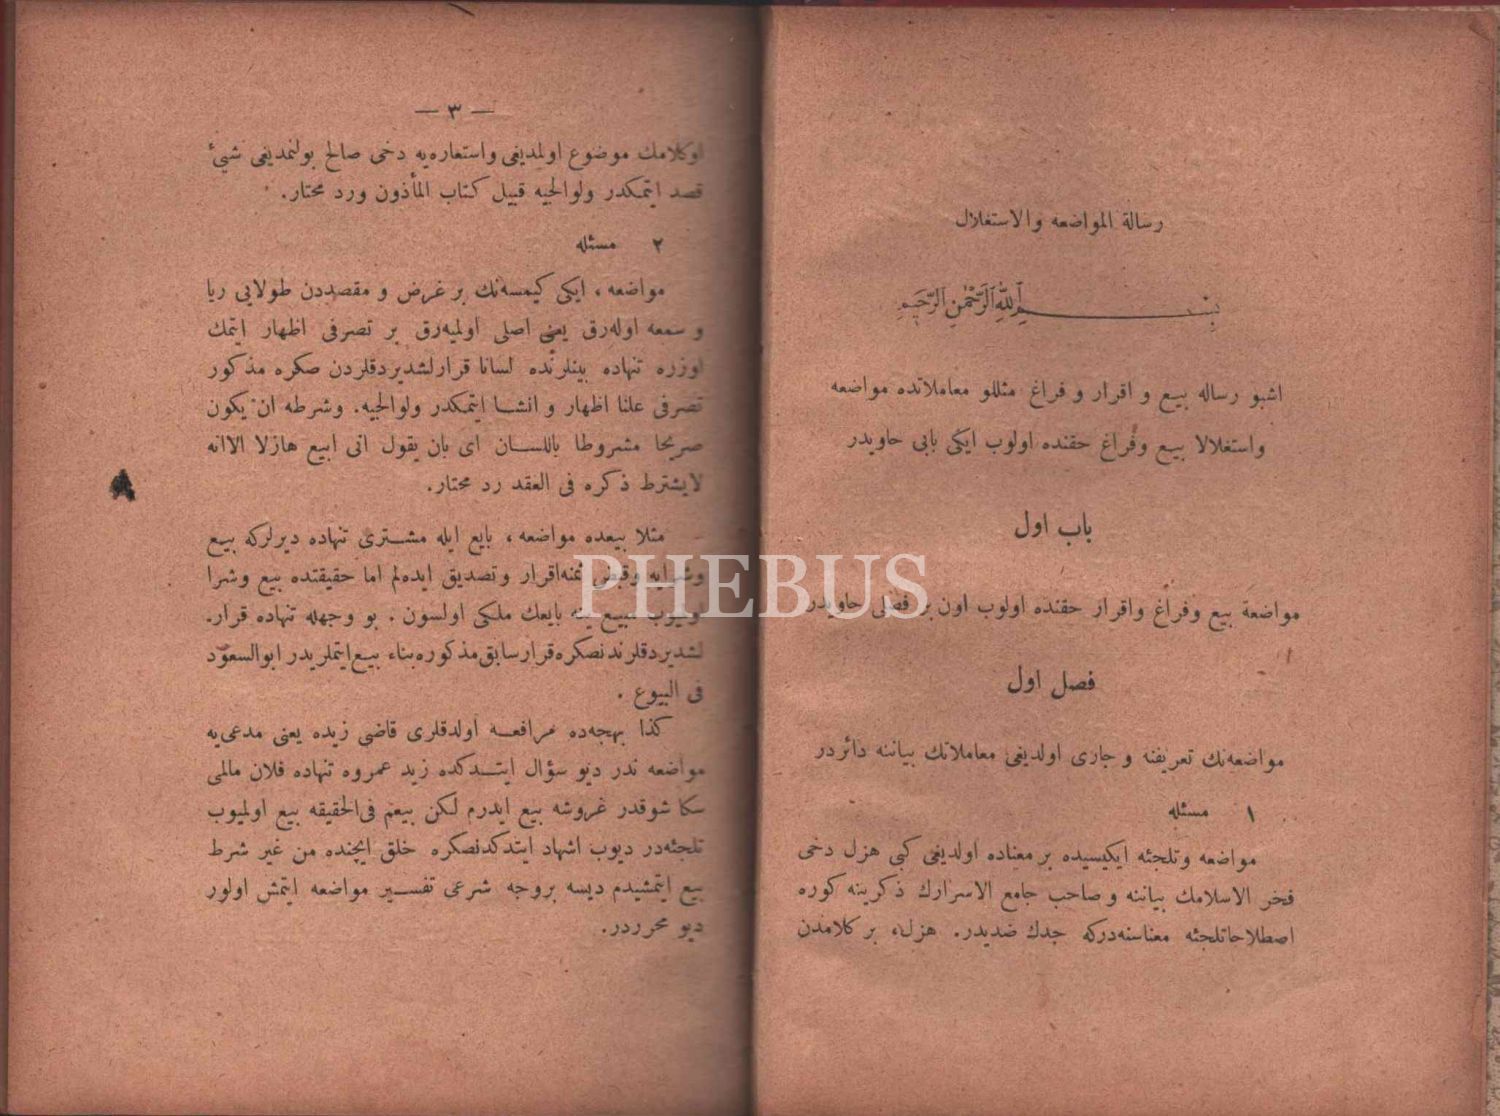 رسالة المواضعه والاستغلال
بسم الله الرحمن الرحيم
اشبو رساله بیع و اقرار و فراغ مثللو معاملاتده مواضعه
واستغلالا بیع وفراغ حقنده اولوب ایکی بابی حاویدر
باب اول
مواضعة بیع وفراغ واقرار حقنده اولوب اون بر فصلی حاویدر
فصل اول
مواضعه‌نك تعریفنه و جاری اولدیغی معاملاتك بیاننه دائردر
۱ مسئله
مواضعه وتلجئه ایکیسیده بر معناده اولدیغی کبی هزل دخی
فخر الاسلامك بیاننه و صاحب جامع الاسرارك ذکرینه کوره
اصطلاحاتلجئه معناسنه‌درکه جدك ضدیدر. هزل، بر کلامدن
— ۳ —
اوکلامك موضوع اولمدیغی واستعاره‌یه دخی صالح بولنمدیغی شیئ
قصد ایتمکدر ولوالجیه قبیل کتاب المأذون ورد محتار.
۲ مسئله
مواضعه، ایکی کیمسه‌نك بر غرض و مقصددن طولایی ریا
و سمعه اوله‌رق یعنی اصلی اولمیه‌رق بر تصرفی اظهار ایتمك
اوزره تنهاده بینلرنده لسانا قرارلشدیردقلردن صکره مذکور
تصرفی علنا اظهار و انشا ایتمکدر ولوالجیه. وشرطه ان یکون
صریحا مشروطا باللسان ای بان یقول انی ابیع هازلا الاانه
لایشترط ذکره فی العقد رد محتار.
مثلا بیعده مواضعه، بایع ایله مشتری تنهاده دیرلرکه بیع
وشرایه وقبض ثمنه‌اقرار وتصدیق ایده‌لم اما حقیقتده بیع وشرا
اولمیوب مبیع ینه بایعك ملکی اولسون. بو وجهله تنهاده قرار.
لشدیردقلرندنصکره‌قرارسابق‌مذکوره‌بناء بیع‌ایتملریدر ابوالسعود
فی البیوع.
کذا بهجه‌ده مرافعه اولدقلری قاضی زیده یعنی مدعی‌یه
مواضعه ندر دیو سؤال ایتدکده زید عمروه تنهاده فلان مالمی
سکا شوقدر غروشه بیع ایدرم لکن بیعم فی‌الحقیقه بیع اولمیوب
تلجئه‌در دیوب اشهاد ایتدکدنصکره خلق ایچنده من غیر شرط
بیع ایتمشیدم دیسه بروجه شرعی تفسیر مواضعه ایتمش اولور
دیو محرردر.
PHEBUS